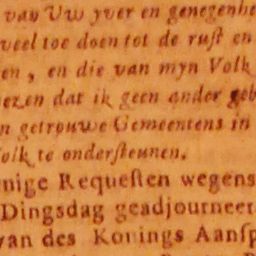 van Uw yver en genegenhe
veel toe doen tot de ruſt en
en, en die van myn Volk
ezen dat ik geen ander geb
n getrouwe Gemeentens in
olk te onderſteunen.
nige Requeſten wegens
Dingsdag geadjourneer
van des Konings Aanſp